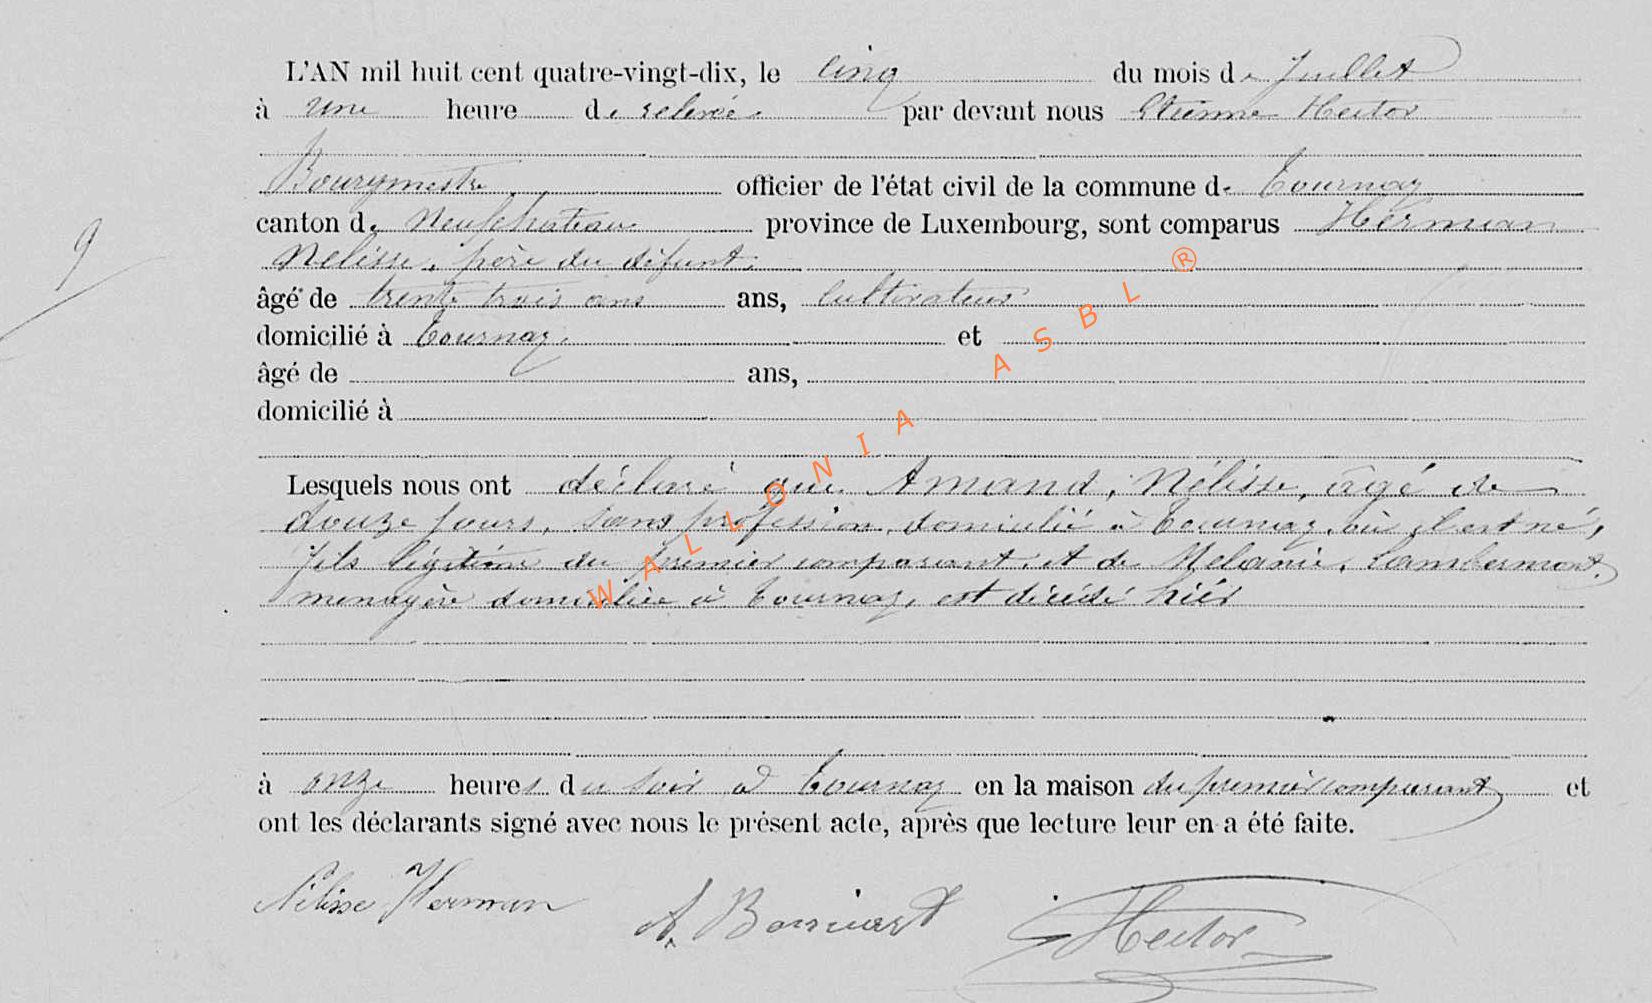 L'AN mil huit cent quatre-vingt-dix, le cinq du mois de Juillet
à une heure de relevée. par devant nous Etienne Hector
Bourgmestre officier de l'état civil de la commune de Tournay
canton de Neufchateau province de Luxembourg, sont comparus Herman
9
Nelisse, père du défunt,
âgé de trente trois ans ans, cultivateur
domicilié à Tournay, et
âgé de ans,
domicilié à
Lesquels nous ont déclaré que Amand, Nélisse, âgé de
douze jours, sans profession, domicilié à Tournay, où il est né,
fils légitime du premier comparant, et de Melanie, Lambermont,
menagère domiciliée à Tournay, est décédé hier
à onze heures du soir à Tournay en la maison du premier comparant et
ont les déclarants signé avec nous le présent acte, après que lecture leur en a été faite.
Nélisse Herman Hector
WALLONIA ASBL ®